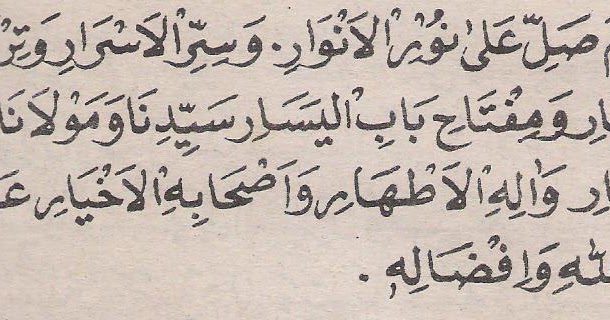 صَلِّ عَلىٰ نُوْرِ الْاَنْوَارِ. وَسِرِّ الْاَسْرَارِ وَتِرْ
ارِ وَمِفْتَاحِ بَابِ الْيَسَارِ سَيِّدِنَا وَمَوْلَانَا
ارِ وَاٰلِهِ الْاَطْهَارِ وَاَصْحَابِهِ الْاَخْيَارِ عَ
للّٰهِ وَاِفْضَالِهِ.